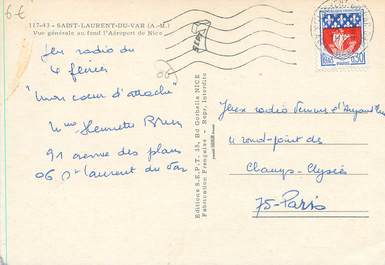 6€
117-43 - SAINT-LAURENT-DU-VAR (A.-M.)
Vue générale au fond l'Aéroport de Nice
Jeu radio du
4 février
"Mon cœur d'attache"
Mme Henriette
91 avenue des plans
06 St Laurent du Var
06
Editions S.E.P.T. 35, Bd Gorbella NICE
Fabrication Française - Repr. Interdite
0,30
Jeux radio
4 rond-point des
Champs-Elysées
75-Paris